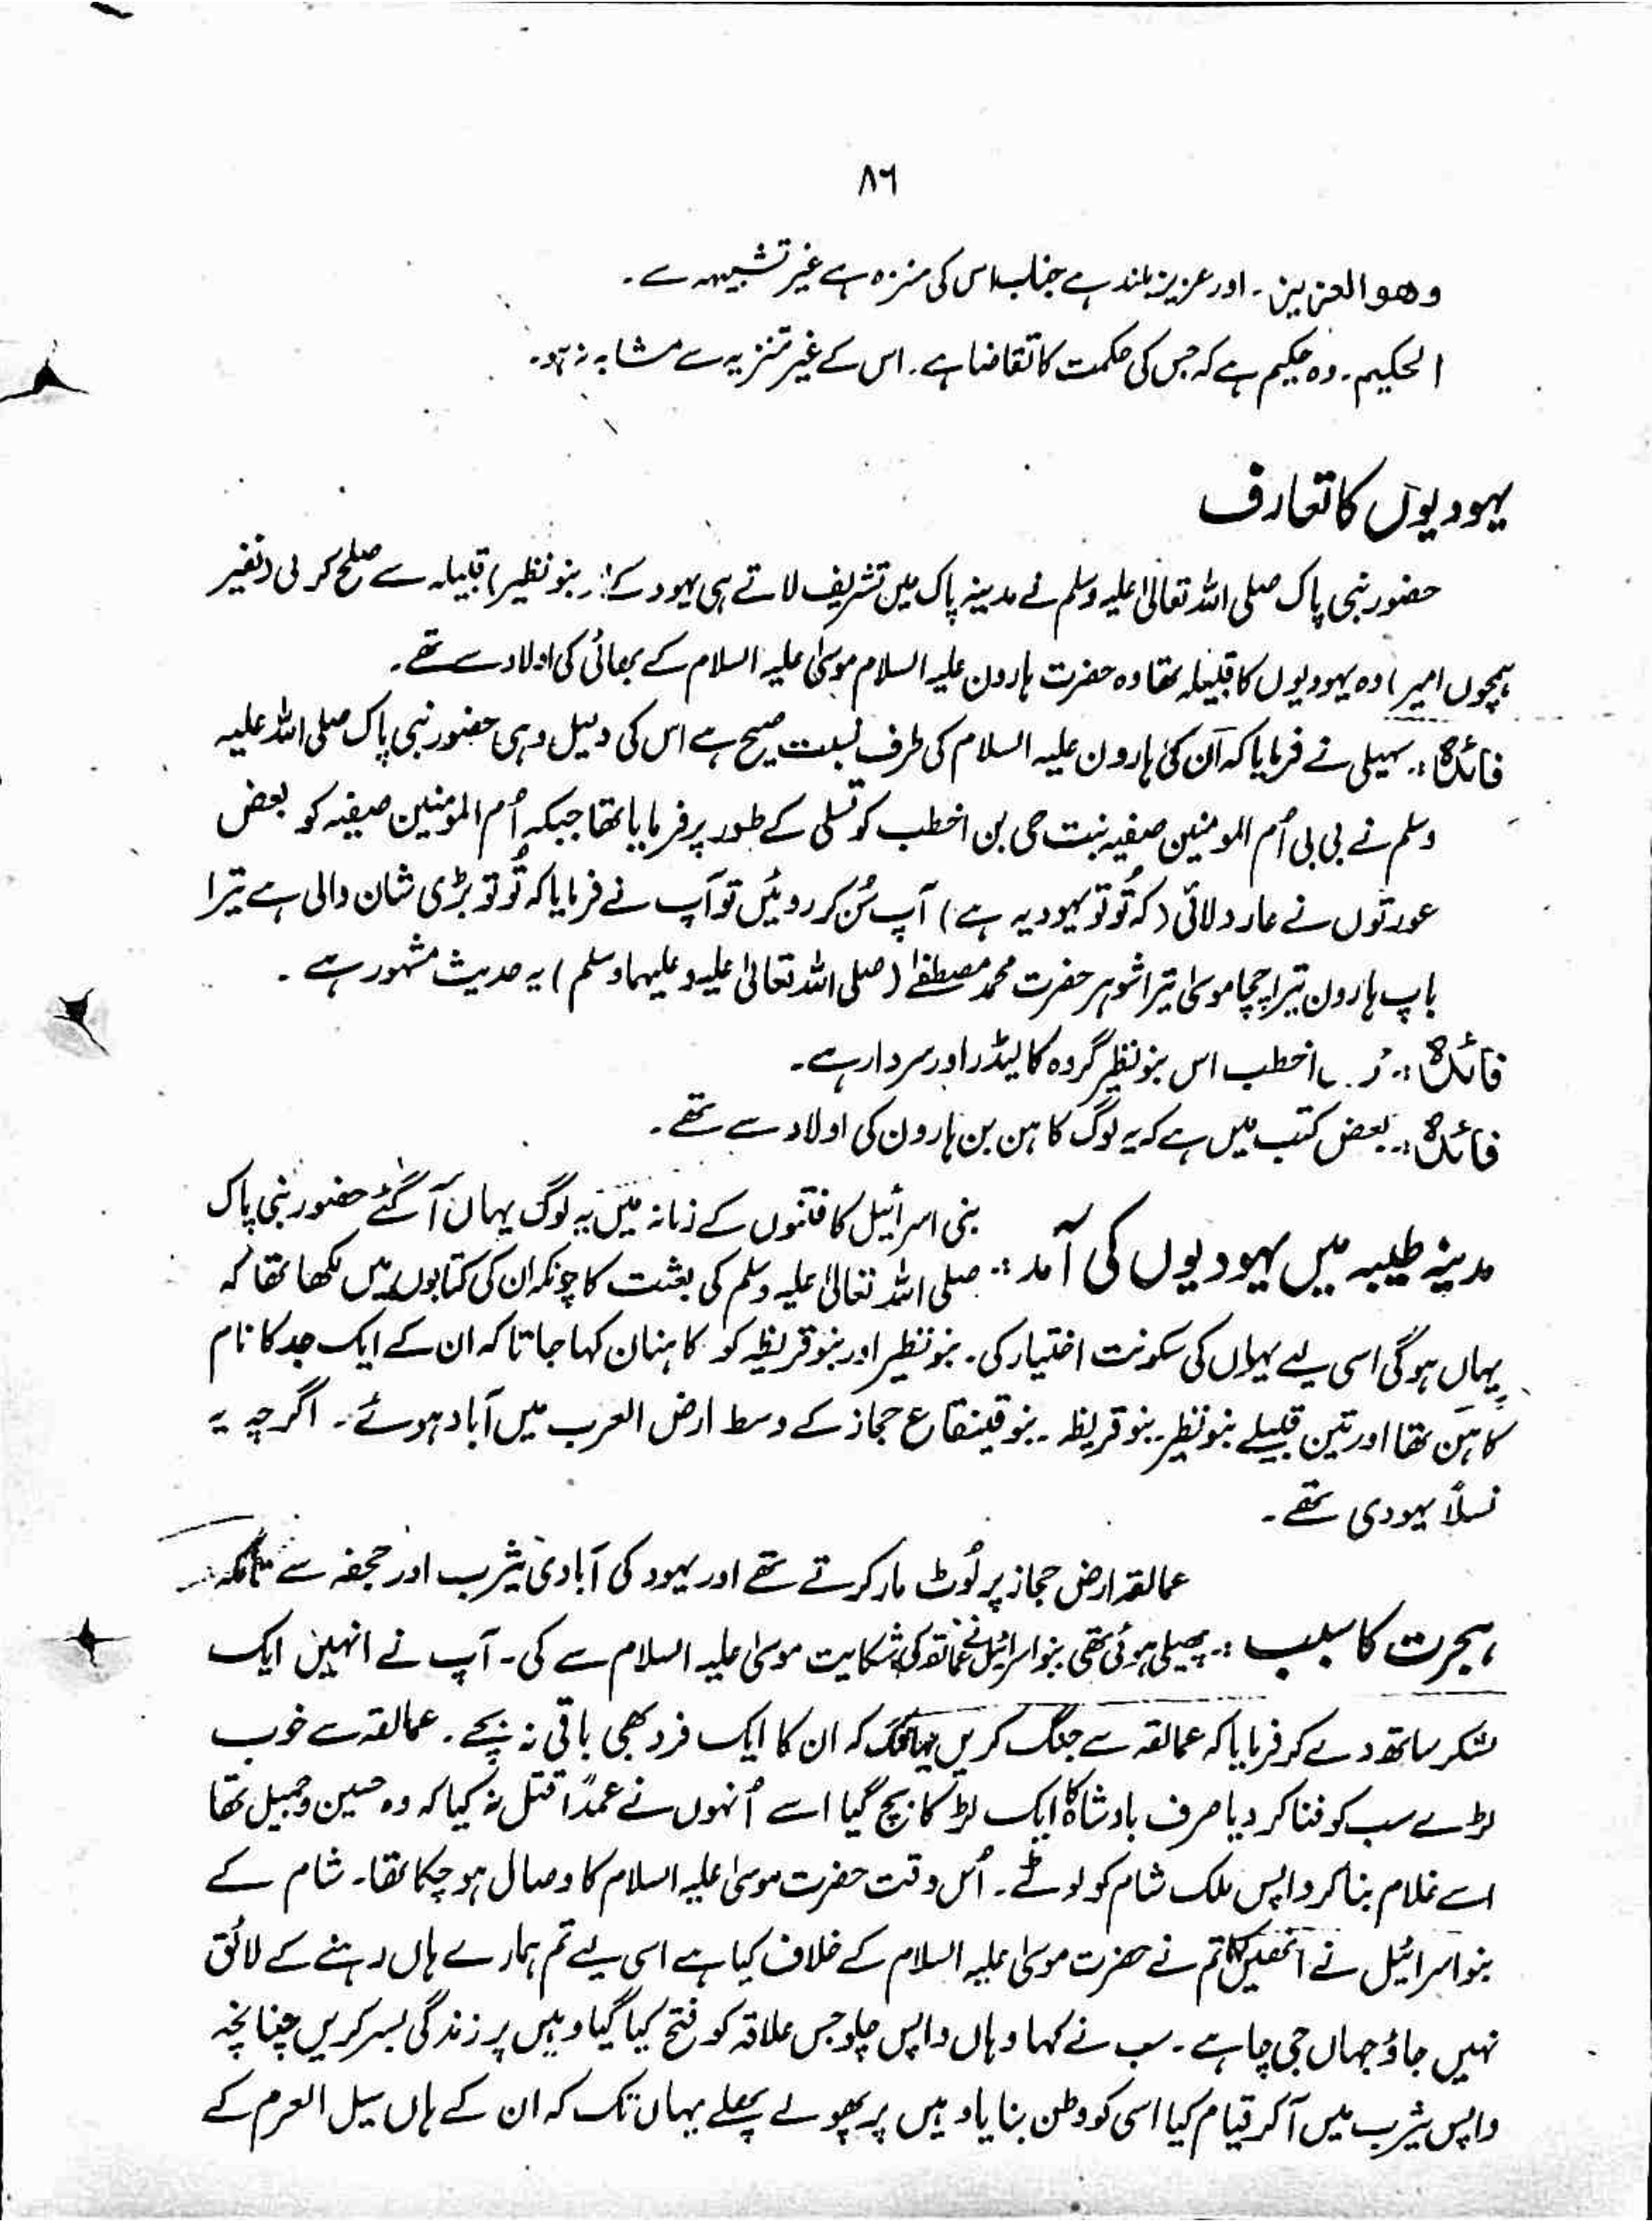 ۸۶
وھو العزیز۔ اور عزیز بلند ہے جناب اس کی منزہ ہے غیر تشبیہہ سے۔
الحکیم۔ وہ حکیم ہے کہ جس کی حکمت کا تقاضا ہے۔ اس کے غیر تنزیہ سے مشابہ نہ ہو۔
یہودیوں کا تعارف
حضور نبی پاک صلی اللہ تعالیٰ علیہ وسلم نے مدینہ پاک میں تشریف لاتے ہی یہود کے (بنو نظیر) قبیلہ سے صلح کر لی (نغیر
ہمچوں امیر) وہ یہودیوں کا قبیلہ تھا وہ حضرت ہارون علیہ السلام موسیٰ علیہ السلام کے بھائی کی اولاد سے تھے۔
فائدہ:۔ سہیلی نے فرمایا کہ ان کی ہارون علیہ السلام کی طرف نسبت صیح ہے اس کی دلیل وہی حضور نبی پاک صلی اللہ علیہ
وسلم نے بی بی اُم المومنین صفیہ بنت حی بن اخطب کو تسلی کے طور پر فرمایا تھا جبکہ اُم المومنین صفیہ کو بعض
عورتوں نے عار دلائی (کہ تُو تو یہودیہ ہے) آپ سُن کر روئیں تو آپ نے فرمایا کہ تُو تو بڑی شان والی ہے تیرا
باپ ہارون تیرا چچا موسیٰ تیرا شوہر حضرت محمد مصطفےٰ (صلی اللہ تعالیٰ علیہ و علیہما وسلم) یہ حدیث مشہور ہے۔
فائدہ:۔ اخطب اس بنو نظیر گروہ کا لیڈر اور سردار ہے۔
فائدہ:۔ بعض کتب میں ہے کہ یہ لوگ کاہن بن ہارون کی اولاد سے تھے۔
بنی اسرائیل کا فتنوں کے زمانہ میں یہ لوگ یہاں آ گئے حضور نبی پاک
مدینہ طیبہ میں یہودیوں کی آمد:۔ صلی اللہ تعالیٰ علیہ وسلم کی بعثت کا چونکہ ان کی کتابوں میں لکھا تھا کہ
یہاں ہو گی اسی لیے یہاں کی سکونت اختیار کی۔ بنو نظیر اور بنو قریظہ کو کاہنان کہا جاتا کہ ان کے ایک جد کا نام
کاہن تھا اور تین قبیلے بنو نظیر۔ بنو قریظہ۔ بنو قینقاع حجاز کے وسط ارض العرب میں آباد ہوئے۔ اگرچہ یہ
نسلاً یہودی تھے۔
عمالقہ ارض حجاز پر لُوٹ مار کرتے تھے اور یہود کی آبادی یثرب اور جحفہ سے تا مکہ
ہجرت کا سبب:۔ پھیلی ہوئی تھی بنو اسرائیل نے عمالقہ کی شکایت موسیٰ علیہ السلام سے کی۔ آپ نے انہیں ایک
لشکر ساتھ دے کر فرمایا کہ عمالقہ سے جنگ کریں یہانتک کہ ان کا ایک فرد بھی باقی نہ بچے۔ عمالقہ سے خوب
لڑے سب کو فنا کر دیا صرف بادشاہ کا ایک لڑکا بچ گیا اسے اُنہوں نے عمداً قتل نہ کیا کہ وہ حسین و جمیل تھا
اسے غلام بنا کر واپس ملک شام کو لوٹے۔ اُس وقت حضرت موسیٰ علیہ السلام کا وصال ہو چکا تھا۔ شام کے
بنو اسرائیل نے انھیں کہا تم نے حضرت موسیٰ علیہ السلام کے خلاف کیا ہے اسی لیے تم ہمارے ہاں رہنے کے لائق
نہیں جاؤ جہاں جی چاہے۔ سب نے کہا وہاں واپس چلو جس علاقہ کو فتح کیا گیا وہیں پر زندگی بسر کریں چنانچہ
واپس یثرب میں آ کر قیام کیا اسی کو وطن بنایا وہیں پر پھولے پھلے یہاں تک کہ ان کے ہاں سیل العرم کے